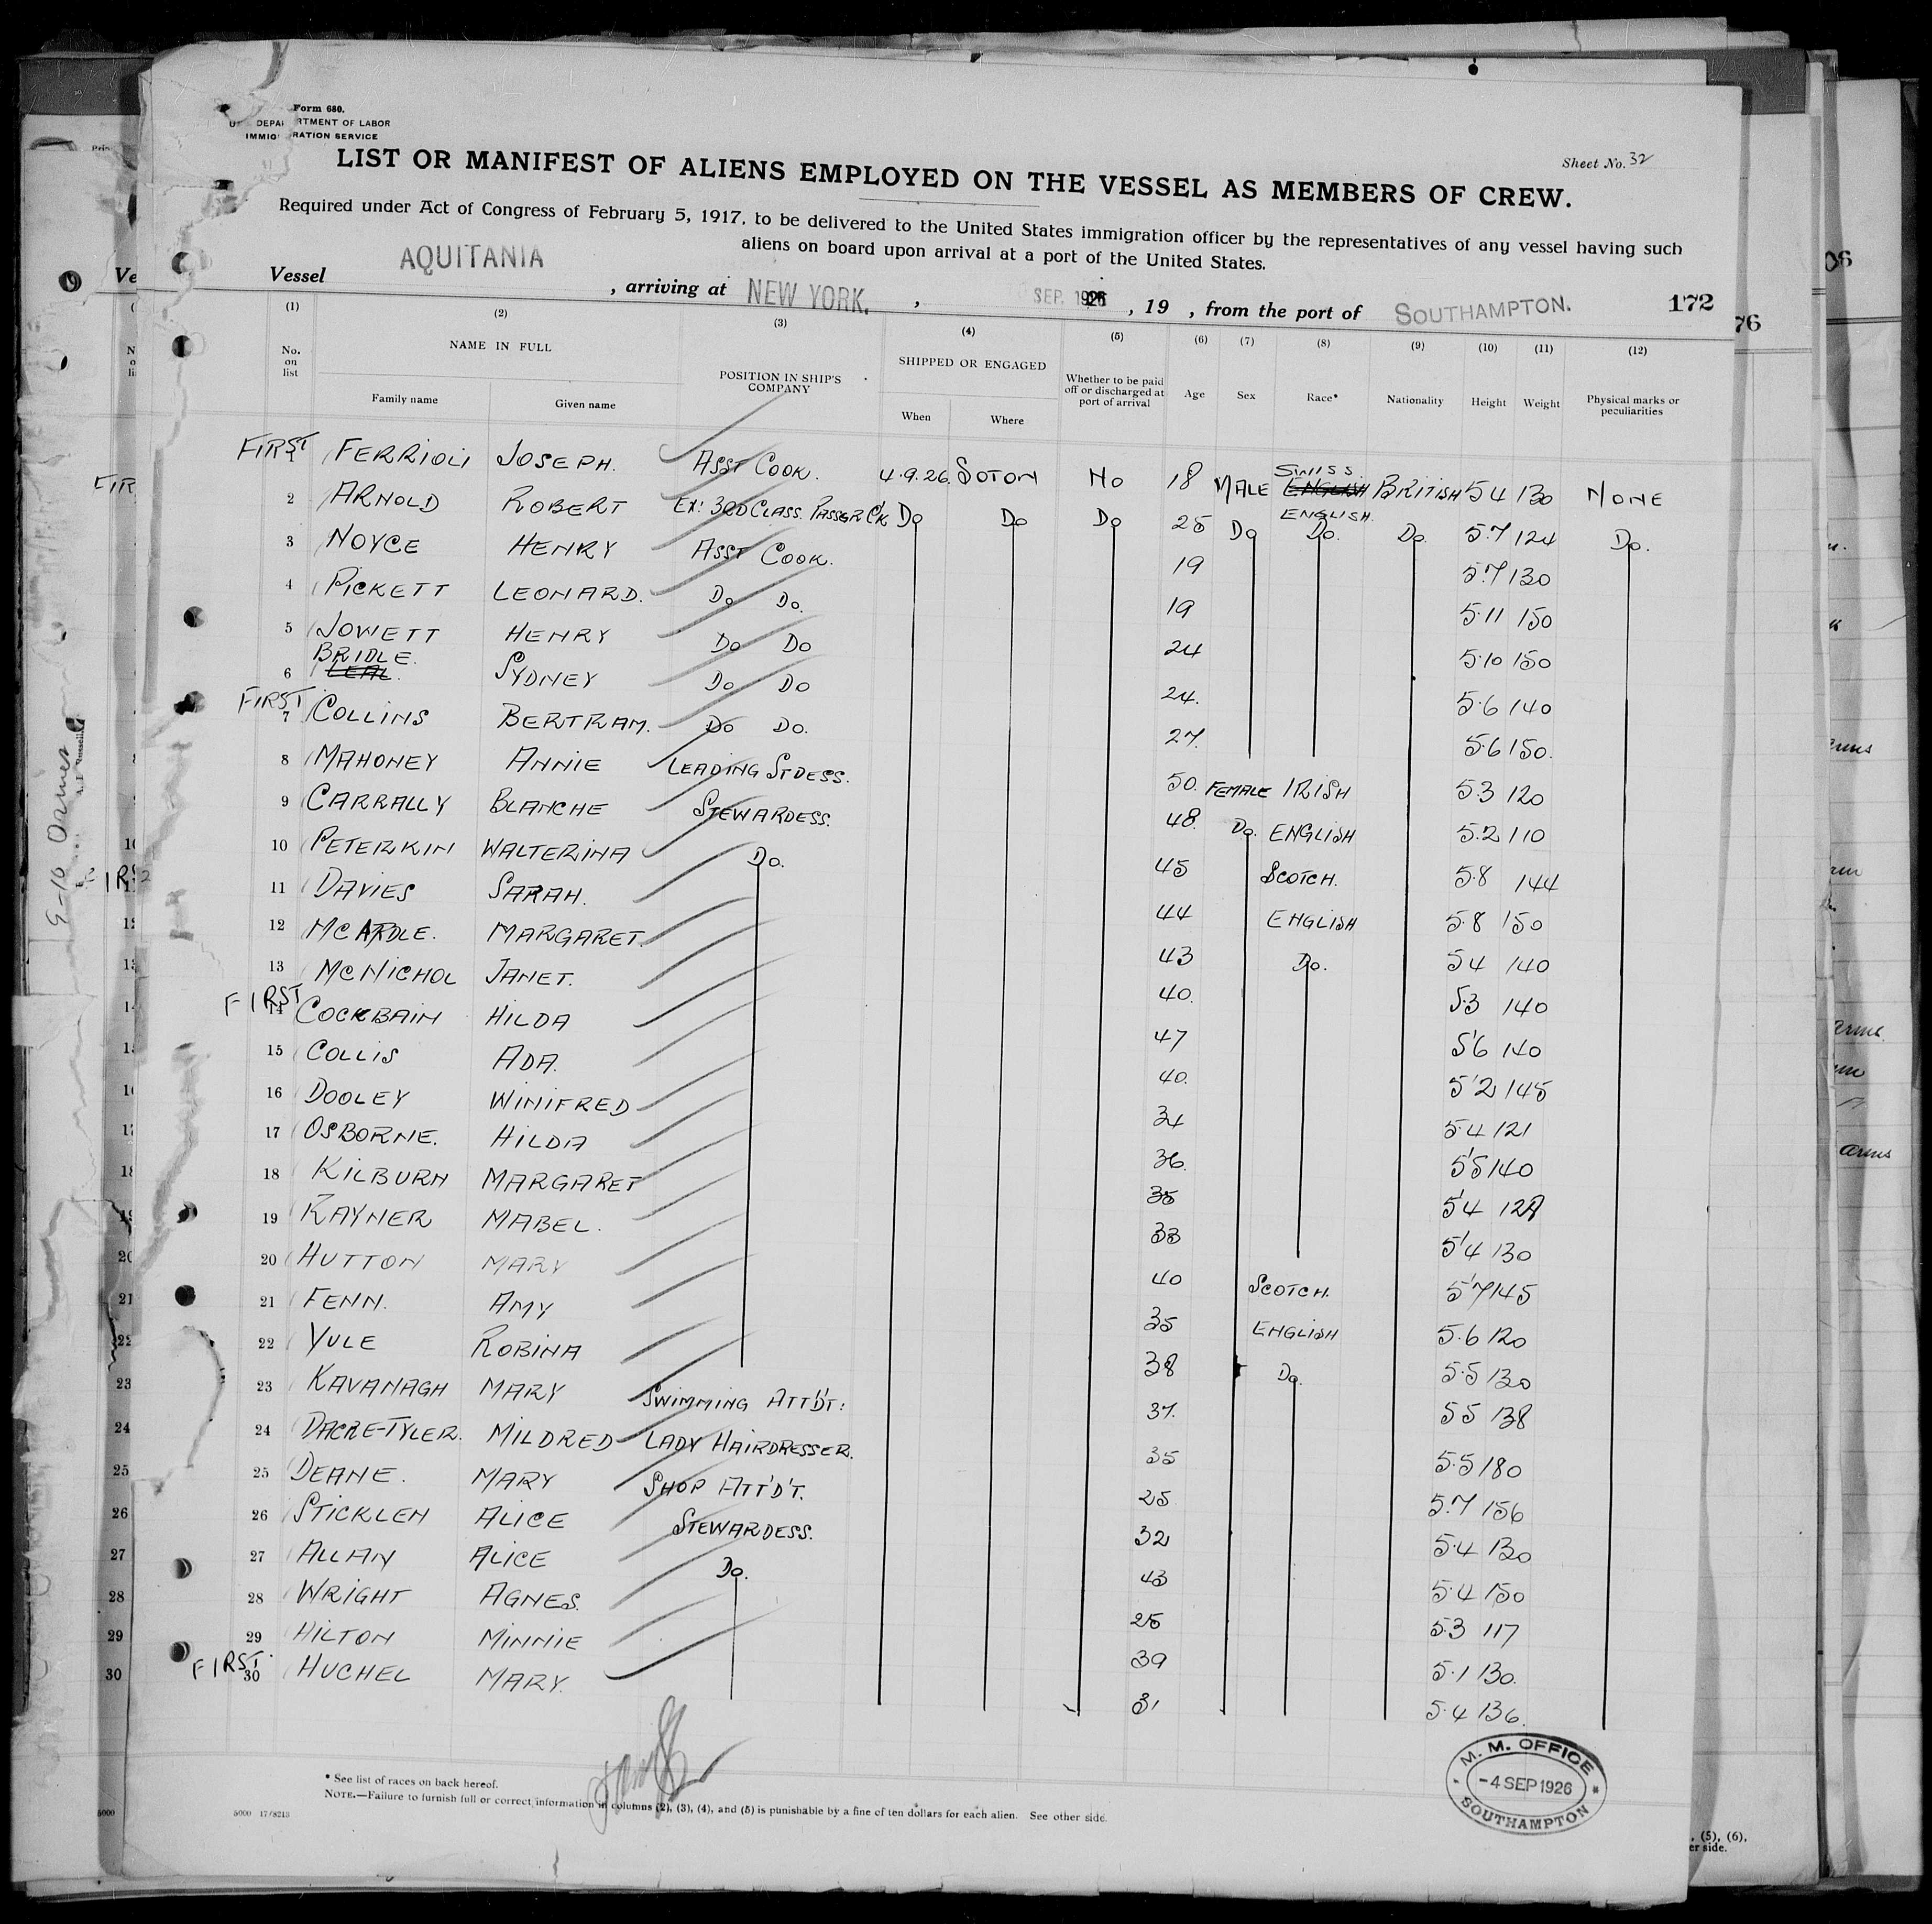 Form 680.
DEPARTMENT OF LABOR
IMMIGRATION SERVICE
Sheet No. 32
LIST OR MANIFEST OF ALIENS EMPLOYED ON THE VESSEL AS MEMBERS OF CREW.
Required under Act of Congress of February 5, 1917, to be delivered to the United States immigration officer by the representatives of any vessel having such
aliens on board upon arrival at a port of the United States.
Vessel AQUITANIA, arriving at NEW YORK., SEP. 1926, 19 , from the port of SOUTHAMPTON. 172
(1) (2) (3) (4) (5) (6) (7) (8) (9) (10) (11) (12)
No. on list NAME IN FULL POSITION IN SHIP'S COMPANY SHIPPED OR ENGAGED Whether to be paid off or discharged at port of arrival Age Sex Race* Nationality Height Weight Physical marks or peculiarities
Family name Given name When Where
FIRST FERRIOLI JOSEPH. ASST COOK. 4.9.26. SOTON NO 18 MALE SWISS ENGLISH BRITISH 5 4 130 NONE
2 ARNOLD ROBERT EX: 3RD CLASS. PASSGR CK Do Do Do 25 Do ENGLISH. Do. Do. 5.7 124 Do.
3 NOYCE HENRY ASST COOK. 19 5.7 130
4 PICKETT LEONARD. Do Do. 19 5.11 150
5 JOWETT HENRY Do Do 24 5.10 150
BRIDLE.
6 LEAL. SYDNEY Do Do 24. 5.6 140
FIRST
7 COLLINS BERTRAM. Do Do. 27. 5.6 150.
8 MAHONEY ANNIE LEADING STDESS. 50. FEMALE IRISH 5.3 120
9 CARRALLY BLANCHE STEWARDESS. 48. Do. ENGLISH 5.2 110
10 PETERKIN WALTERINA Do. 45 SCOTCH. 5.8 144
11 DAVIES SARAH. 44 ENGLISH 5.8 150
12 MCARDLE. MARGARET. 43 Do. 5 4 140
13 MCNICHOL JANET. 40. 5.3 140
FIRST
14 COCKBAIN HILDA 47 5'6 140
15 COLLIS ADA. 40. 5'2 145
16 DOOLEY WINIFRED 34 5.4 121
17 OSBORNE. HILDA 36. 5'5 140
18 KILBURN MARGARET 35 5'4
19 RAYNER MABEL. 33 5'4 130
20 HUTTON MARY 40 SCOTCH. 5'7 145
21 FENN. AMY 35 ENGLISH 5.6 120
22 YULE ROBINA 38 Do. 5.5 130
23 KAVANAGH MARY SWIMMING ATT'DT: 37. 5 5 138
24 DACRE-TYLER. MILDRED LADY HAIRDRESSER. 35 5.5 180
25 DEANE. MARY SHOP ATT'D'T. 25 5.7 156
26 STICKLEN ALICE STEWARDESS. 32 5.4 130
27 ALLAN ALICE Do. 43 5.4 150
28 WRIGHT AGNES. 25 5.3 117
29 HILTON MINNIE 39 5.1 130.
FIRST.
30 HUCHEL MARY. 31 5.4 136.
* See list of races on back hereof.
NOTE.—Failure to furnish full or correct information in columns (2), (3), (4), and (5) is punishable by a fine of ten dollars for each alien. See other side.
5000 17/8213
M. M. OFFICE
-4 SEP 1926
SOUTHAMPTON
76
, (5), (6),
er side.